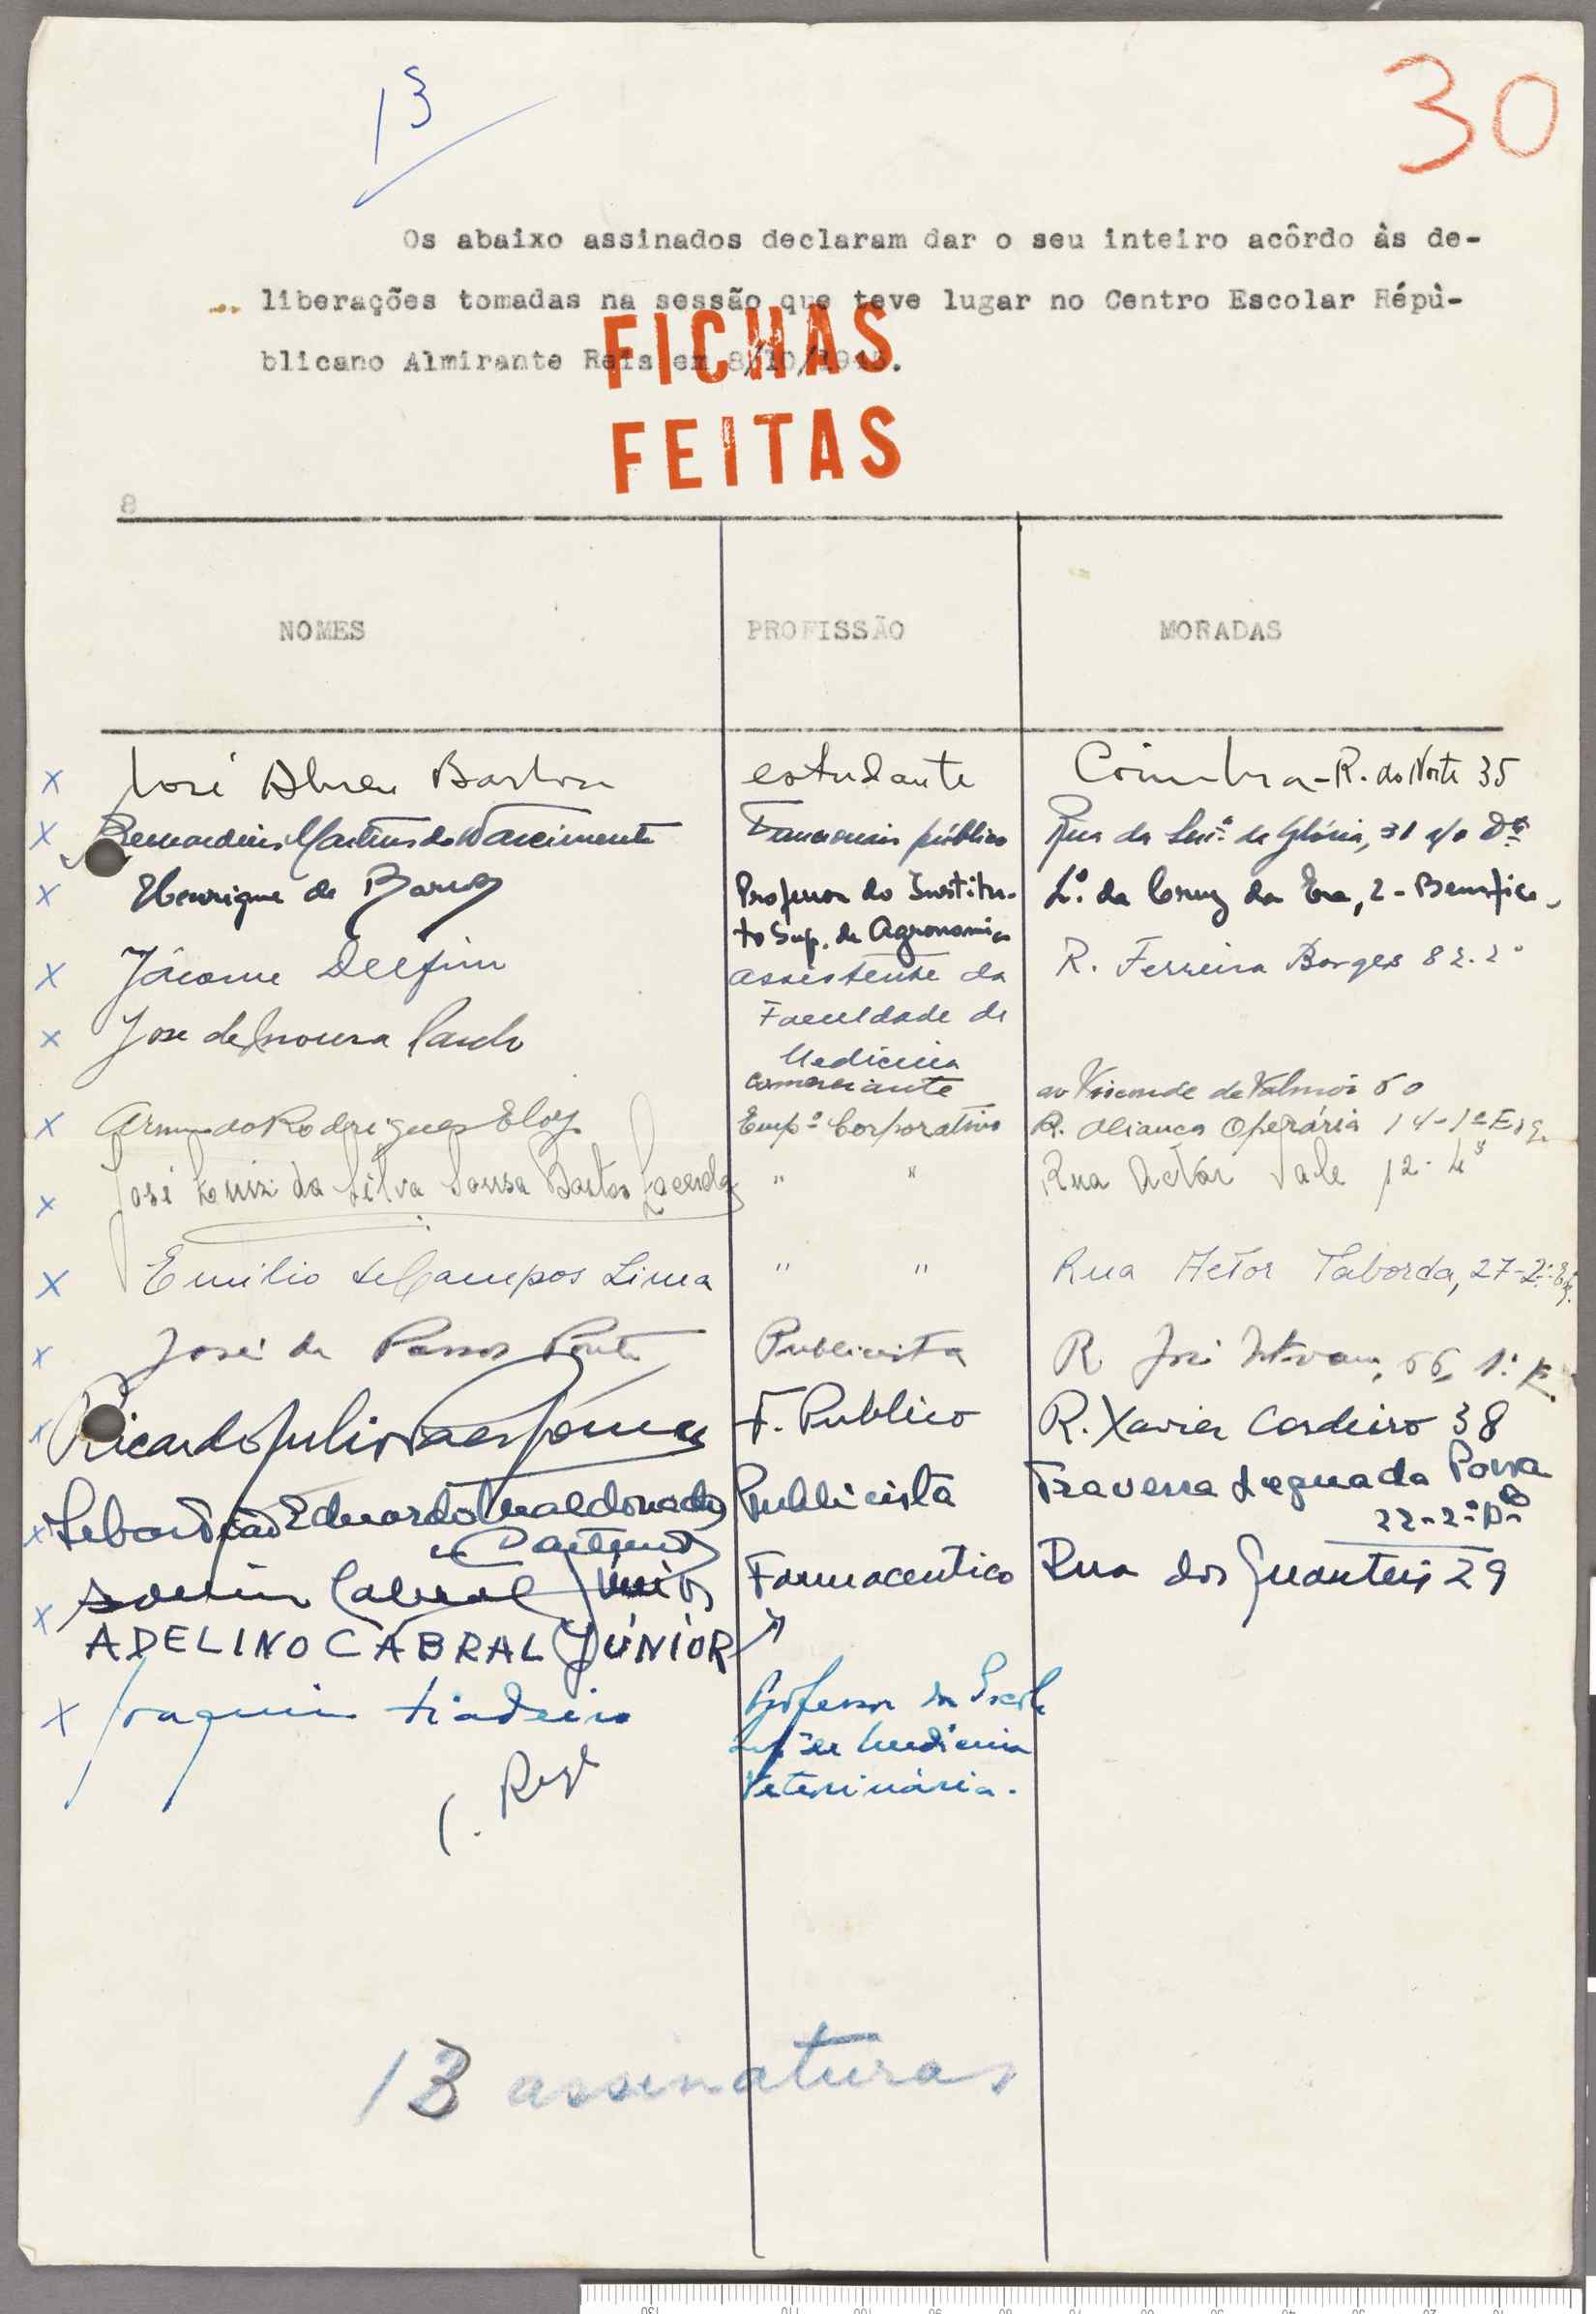 13
30
Os abaixo assinados declaram dar o seu inteiro acôrdo às de-
liberações tomadas na sessão que teve lugar no Centro Escolar Répù-
blicano Almirante Reis em 8/10/1945.
FICHAS
FEITAS
8
NOMES PROFISSÃO MORADAS
x José Abreu Bastos estudante Coimbra - R. do Norte 35
x Bernardino Martins do Nascimento Funcionario público Rua da da Glória, 31
x Henrique de Barros Professor do Institu- L.º da Cruz da Era, 2 - Benfica
to Sup. de Agronomia
x Jácome Delfim assistente da R. Ferreira Borges 82.2º
Faculdade de
Medicina
x José de Moura comerciante av Visconde de Valmór 60
x Armando Rodrigues Eloy Empº Corporativo R. Aliança Operária 14-1º Esq.
x José Luiz da Silva Sousa Bastos Lacerda " " Rua Actor Vale 12-4º
x Emilio de Campos Lima " " Rua Actor Taborda, 27-2º-Esq.
x José de Passos Ponte Publicista R. José Estevam, 66, 1º
x Ricardo Julio F. Publico R. Xavier Cordeiro 38
x Sebastião Eduardo Maldonado Publicista Travessa Légua da Povoa
22-2º
x Cabral Júnior Farmaceutico Rua dos 29
ADELINO CABRAL JÚNIOR
x Joaquim Fiadeiro Professor da Escola
Sup. de Medicina
Veterinária.
13 assinaturas